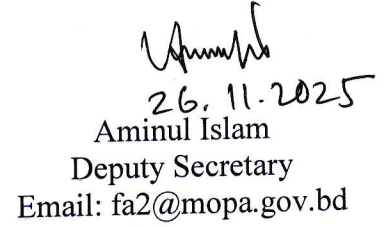 26.11.2025
Aminul Islam
Deputy Secretary
Email: fa2@mopa.gov.bd